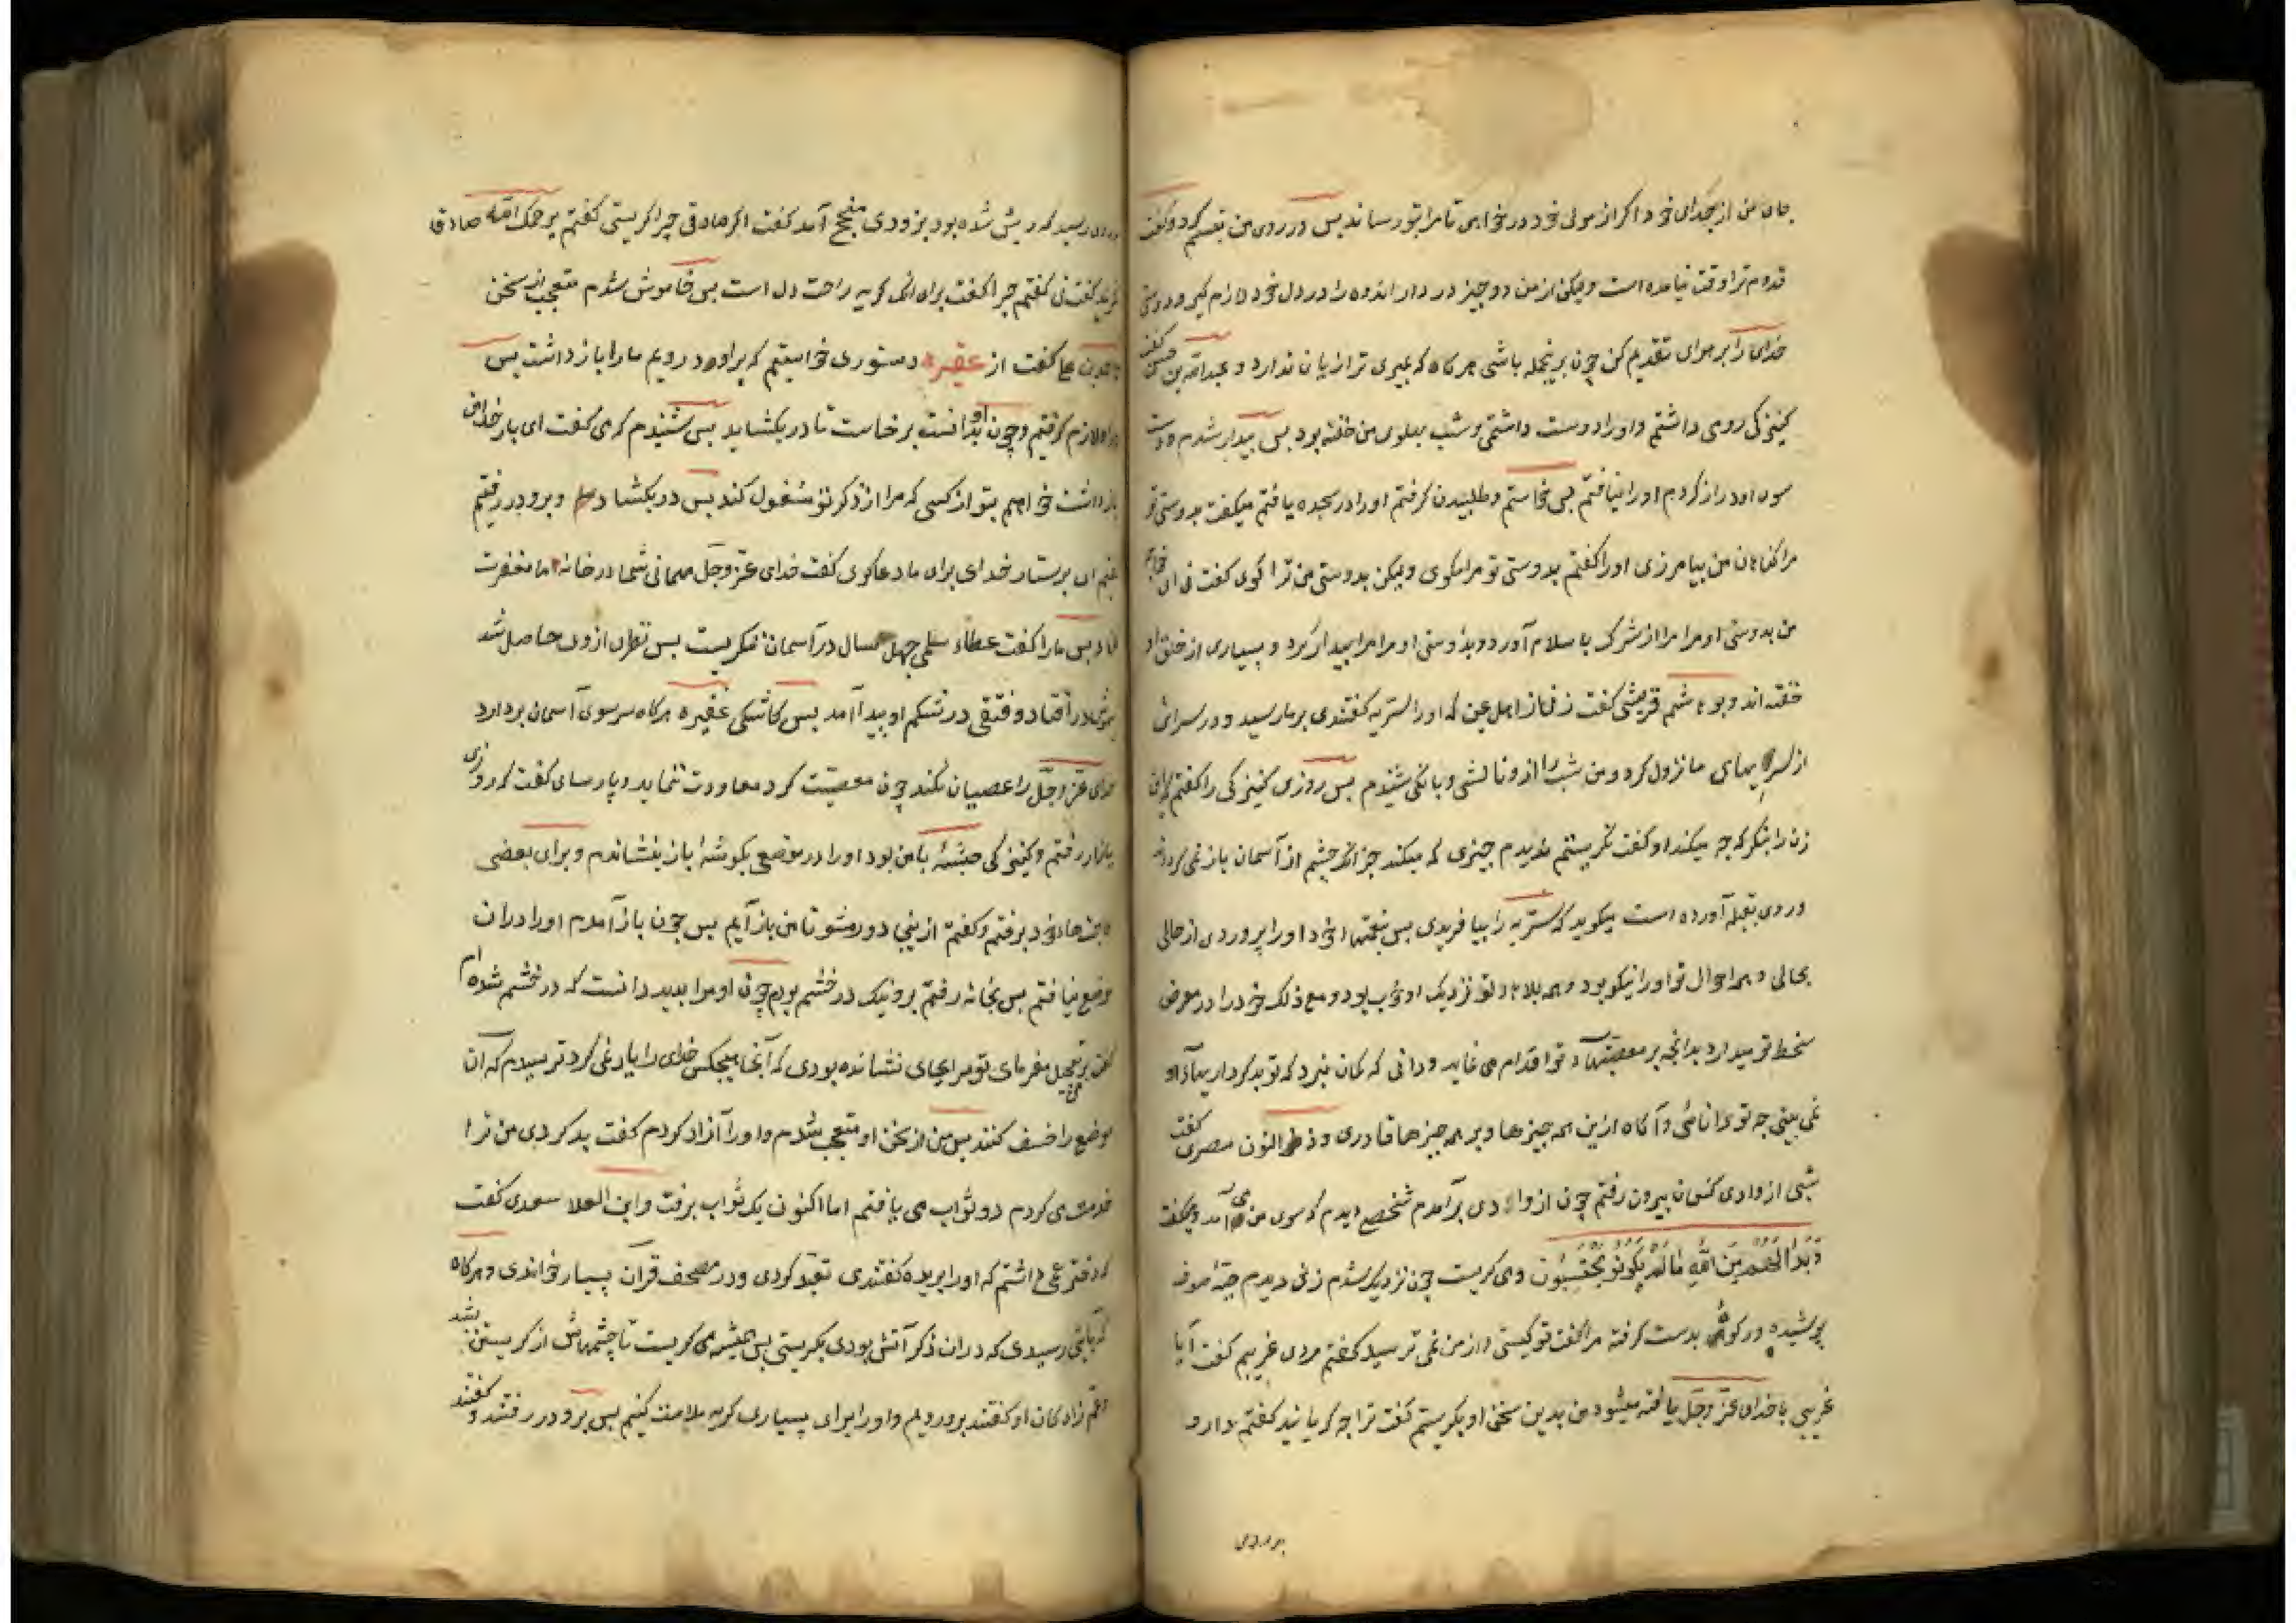 جان من از بحدای خود اکر از مولی خود در خواهی تا مرا بتو رساند پس در روی من تبسم کرد و کفت
قدوم ترا وقت نیامده است ولیکن از من دو چیز در دار اندوه را در دل خود لازم کیر و دوستی
خدای را بر هوای تقدیم کن چون برینجمله باشی هر کاه که بمیری ترا زیان ندارد و عبدالله بن حسن کفت
کنیزکی رومی داشتم و او را دوست داشتمی و شب بهلوی من خفته بود پس بیدار شدم و دست
سوی او دراز کردم او را نیافتم پس بخاستم و طلبیدن کرفتم او را در سجده یافتم میکفت بدوستی تو
مرا کناهان من بیامرزی او را کفتم بدوستی تو مرا مکوی ولیکن بدوستی من ترا کوی کفت نی ای خواجه
من بدوستی او مرا از شرک باسلام آورد و بدوستی او مرا بیدار کرد و بسیاری از خلق او
خفته اند و بو هاشم قریشی کفت زنی از اهل یمن که او را سریه کفتندی بر ما رسید و در سرای
از سراییهای ما نزول کرد و من شب را ازو نالشی و بانکی شنیدم پس روزی کنیزکی را کفتم این
زن را بنکر که چه میکند او کفت نکریستم ندیدم چیزی که میکند جز آنکه چشم از آسمان باز نمی کرداند
و روی بقبله آورده است میکوید که سریه را بیافریدی پس بنعمتهاء خود او را پروردی از حالی
بحالی و همه احوال تو او را نیکو بود و همه بلاهاء تو نزدیک او خوب بود و مع ذلک خود را در معرض
سخط تو میدارد بدانچه بر معصیتهاء تو اقدام می نماید و دانی که کمان نبرد که تو بدکرداریهاء او
نمی بینی چه تو دانائی و آکاه ازین همه چیزها و بر همه چیزها قادری و ذو النون مصری کفت
شبی از وادی کنعان بیرون رفتم چون از وادی برآمدم شخصی دیدم که سوی من می آمد و میکفت
وَبَدَا لَهُمْ مِنَ اللهِ مَا لَمْ يَكُونُوا يَحْتَسِبُونَ و می کریست چون نزدیک شدم زنی دیدم جبهٔ صوف
پوشیده و رکوه بدست کرفته مرا کفت تو کیستی و از من نمی ترسید کفتم مردی غریبم کفت آیا
غریبی با خدای عز و جل یافته میشود من بدین سخن او بکریستم کفت ترا چه کریانید کفتم دارو
بر دردی
رسید که ریش شده بود بزودی منجح آمد کفت اکر صادقی چرا کریستی کفتم یرحمک الله صادق
نکرید کفت نی کفتم چرا کفت برای انک کریه راحت دل است پس خاموش شدم متعجب از سخن
کفت از عفیره دستوری خواستیم که بر او در رویم ما را باز داشت پس
در او لازم کرفتیم و چون او بدانست برخاست تا در بکشاید پس شنیدم که می کفت ای بار خدای
بازداشت خواهم بتو از کسی که مرا از ذکر تو مشغول کند پس در بکشاد و برو در رفتیم
کفتم ای پرستار خدای برای ما دعا کوی کفت خدای عز و جل مهمانی شما در خانه ما مغفرت
کناد پس ما را کفت عطاء سلمی چهل سال در آسمان ننکریست پس نظری ازوی حاصل شد
بیهوش در افتاد و فتقی در شکم او پیدا آمد پس کاشکی عفیره هر کاه سر سوی آسمان بردارد
خدای عز و جل را عصیان نکند چون معصیت کرد معاودت ننماید و پارسای کفت که روزی
ببازار رفتم و کنیزکی حبشیه با من بود او را در موضعی بکوشهٔ بازار بنشاندم و برای بعضی
حاجتهاء خود برفتم و کفتم ازینجا دور مشو تا من باز آیم پس چون باز آمدم او را دران
موضع نیافتم پس بخانه رفتم برو نیک در خشم بودم چون او مرا بدید دانست که در خشم شده ام
کفت بر من تعجیل مفرمای تو مرا بجای نشانده بودی که آنجا هیچکس خدای را یاد نمی کرد ترسیدم که آن
موضع را خسف کنند پس من از سخن او متعجب شدم و او را آزاد کردم کفت بد کردی من ترا
خدمت می کردم دو ثواب می یافتم اما اکنون یک ثواب برفت و ابن العلا سعدی کفت
که دختر عمی داشتم که او را بریده کفتندی تعبد کردی و در مصحف قرآن بسیار خواندی و هر کاه
که بآیتی رسیدی که دران ذکر آتش بودی بکریستی پس همیشه می کریست تا چشمهاش از کریستن بشد
عم زادکان او کفتند برو رویم و او را برای بسیاری کریه ملامت کنیم پس برو در رفتند و کفتند